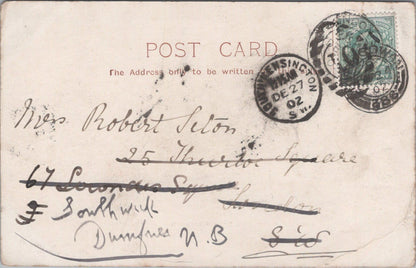 POST CARD
The Address only to be written
SOUTH KENSINGTON
DE 27
02
S.W.
Mrs Robert Seton
25 Thurloe Square
67
London
S.W.
Southwick
Dumfries N.B